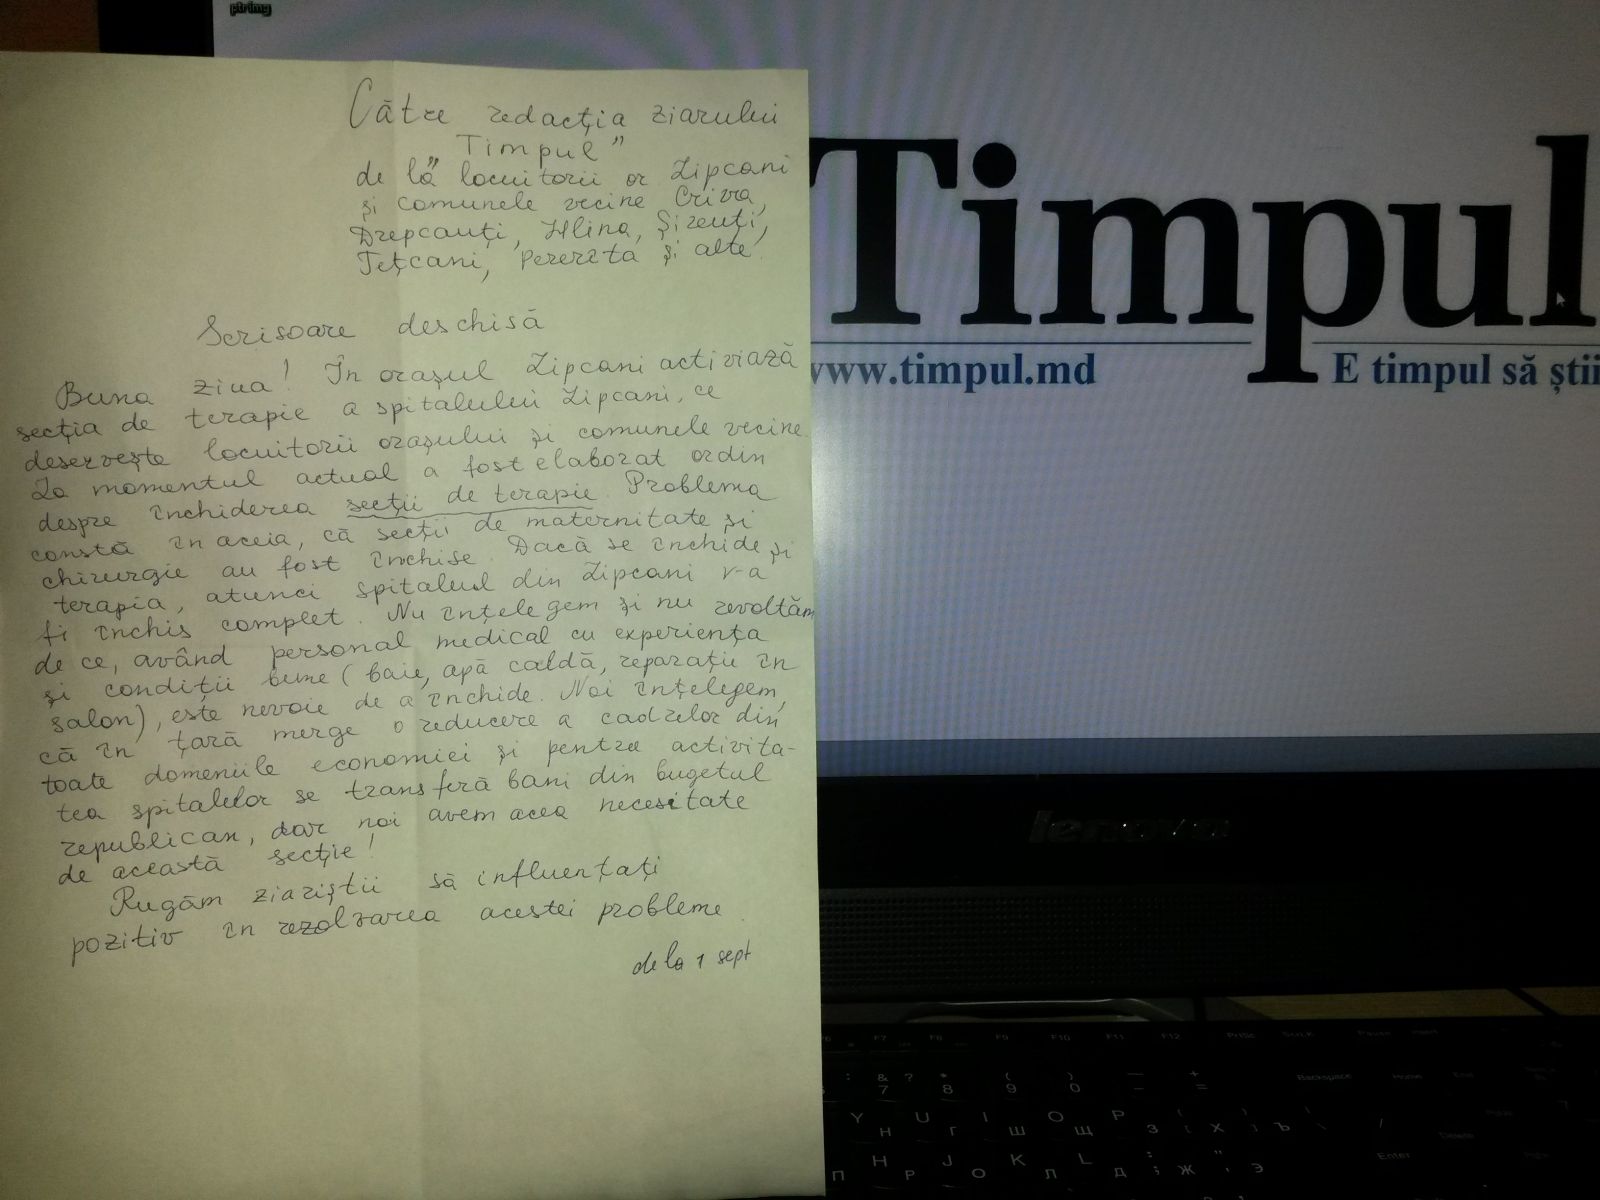 piring
Către redacția ziarului
"Timpul"
de la locuitorii or Lipcani
și comunele vecine Criva,
Drepcauți, Hlina, Șireuți,
Tețcani, Pererîta și alte.
Scrisoare deschisă
Buna ziua! În orașul Lipcani activiază
secția de terapie a spitalului Lipcani, ce
deservește locuitorii orașului și comunele vecine.
La momentul actual a fost elaborat ordin
despre închiderea secții de terapie. Problema
constă în aceia, că secții de maternitate și
chirurgie au fost închise. Dacă se închide și
terapia, atunci spitalul din Lipcani v-a
fi închis complet. Nu înțelegem și nu revoltăm
de ce, având personal medical cu experiența
și condiții bune (baie, apă caldă, reparații în
salon), este nevoie de a închide. Noi înțelegem,
că în țară merge o reducere a cadrelor din
toate domeniile economiei și pentru activita-
tea spitalelor se transferă bani din bugetul
republican, dar noi avem acea necesitate
de această secție!
Rugăm ziariștii să influențați
pozitiv în rezolvarea acestei probleme.
de la 1 sept
Timpul
www.timpul.md
E timpul să știi
lenovo
F7 F8 F9 F10 F11 F12 PrtSc ScrLk Pause Insert
& 7 ? * 8 ( 9 ) 0 — - + = Backspace Home End
Y Н U Г I Ш O Щ P З Х Ъ \ / Delete
П H Р J О K Л L Д ; Ж " ' Э Enter